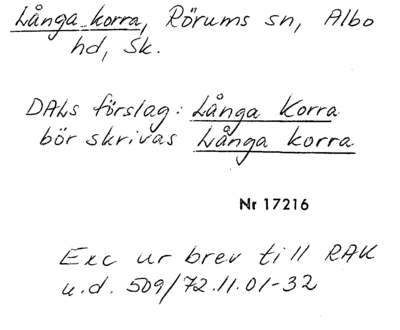 Långa korra, Rörums sn, Albo
hd, Sk.
DALs förslag: Långa Korra
bör skrivas Långa korra
Nr 17216
Exc ur brev till RAK
u.d. 509/72.11.01-32